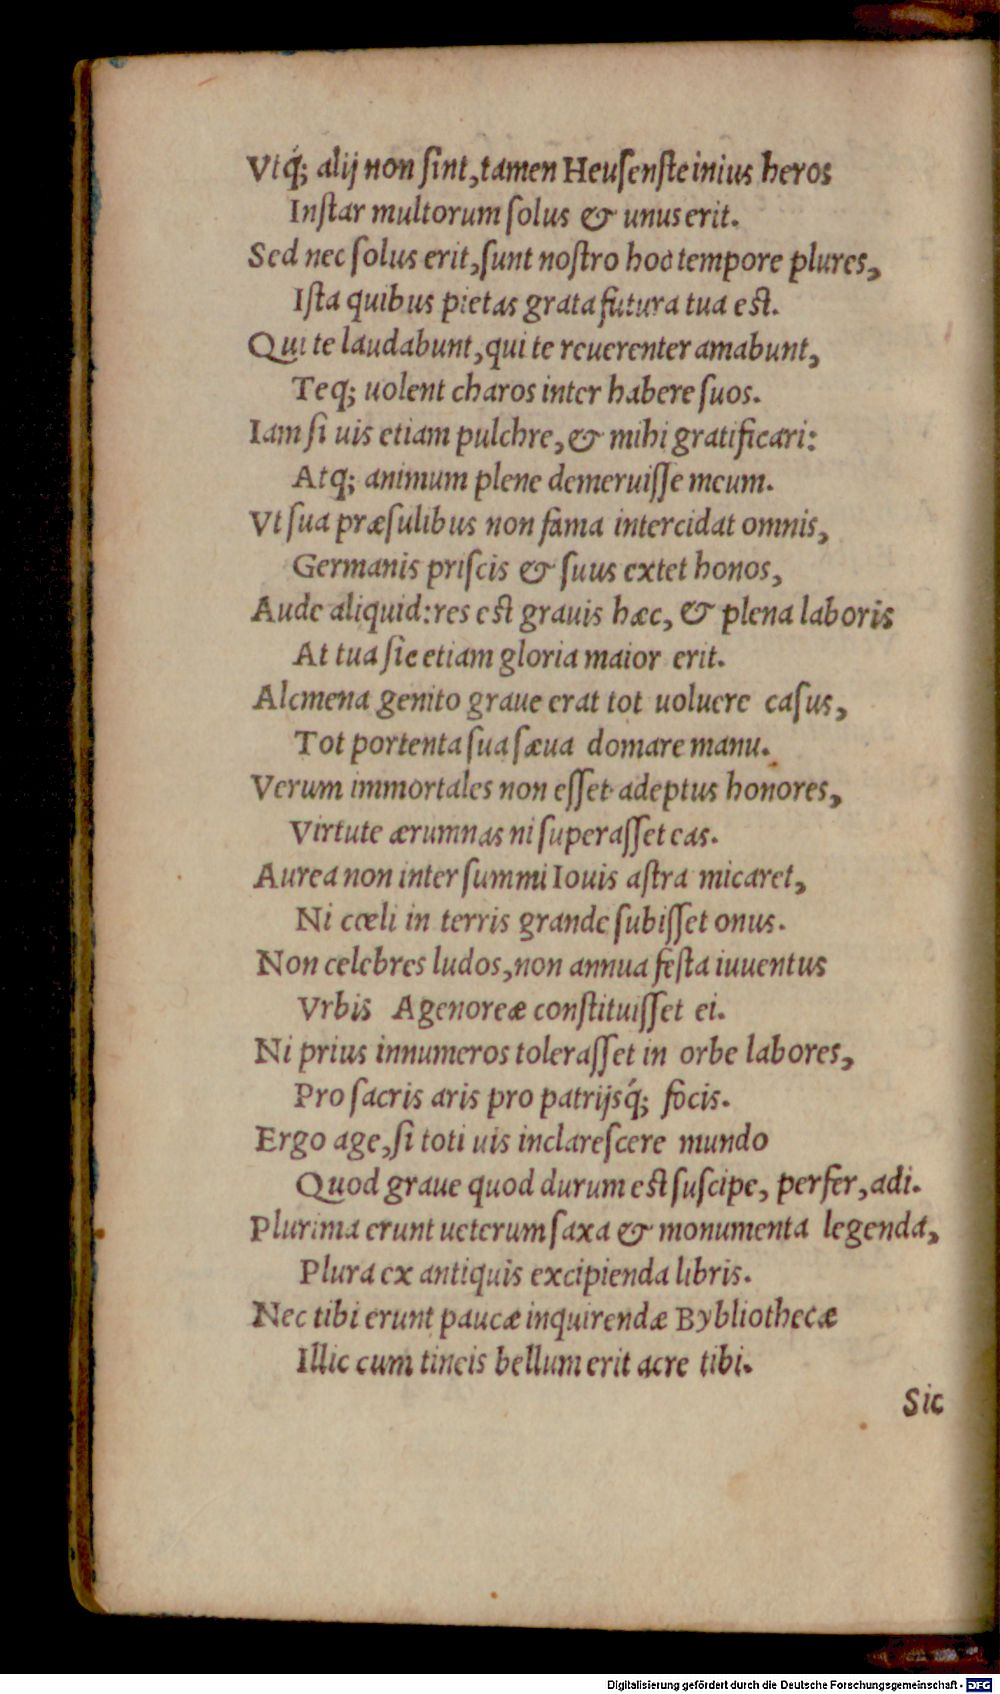 Vtq́; alij non ſint, tamen Heuſenſteinius heros
Inſtar multorum ſolus & unus erit.
Sed nec ſolus erit, ſunt noſtro hoc tempore plures,
Iſta quibus pietas grata futura tua eſt.
Qui te laudabunt, qui te reuerenter amabunt,
Teq; uolent charos inter habere ſuos.
Iam ſi uis etiam pulchre, & mihi gratificari:
Atq; animum plene demeruiſſe meum.
Vt ſua præſulibus non fama intercidat omnis,
Germanis priſcis & ſuus extet honos,
Aude aliquid: res eſt grauis hæc, & plena laboris
At tua ſic etiam gloria maior erit.
Alcmena genito graue erat tot uoluere caſus,
Tot portenta ſua ſæua domare manu.
Verum immortales non eſſet adeptus honores,
Virtute ærumnas ni ſuperaſſet eas.
Aurea non inter ſummi Iouis aſtra micaret,
Ni cœli in terris grande ſubiſſet onus.
Non celebres ludos, non annua feſta iuuentus
Vrbis Agenoreæ conſtituiſſet ei.
Ni prius innumeros toleraſſet in orbe labores,
Pro ſacris aris pro patrijsq́; focis.
Ergo age, ſi toti uis inclareſcere mundo
Quod graue quod durum eſt ſuſcipe, perfer, adi.
Plurima erunt ueterum ſaxa & monumenta legenda,
Plura ex antiquis excipienda libris.
Nec tibi erunt paucæ inquirendæ Bybliothecæ
Illic cum tineis bellum erit acre tibi.
Sic
Digitalisierung gefördert durch die Deutsche Forschungsgemeinschaft - DFG